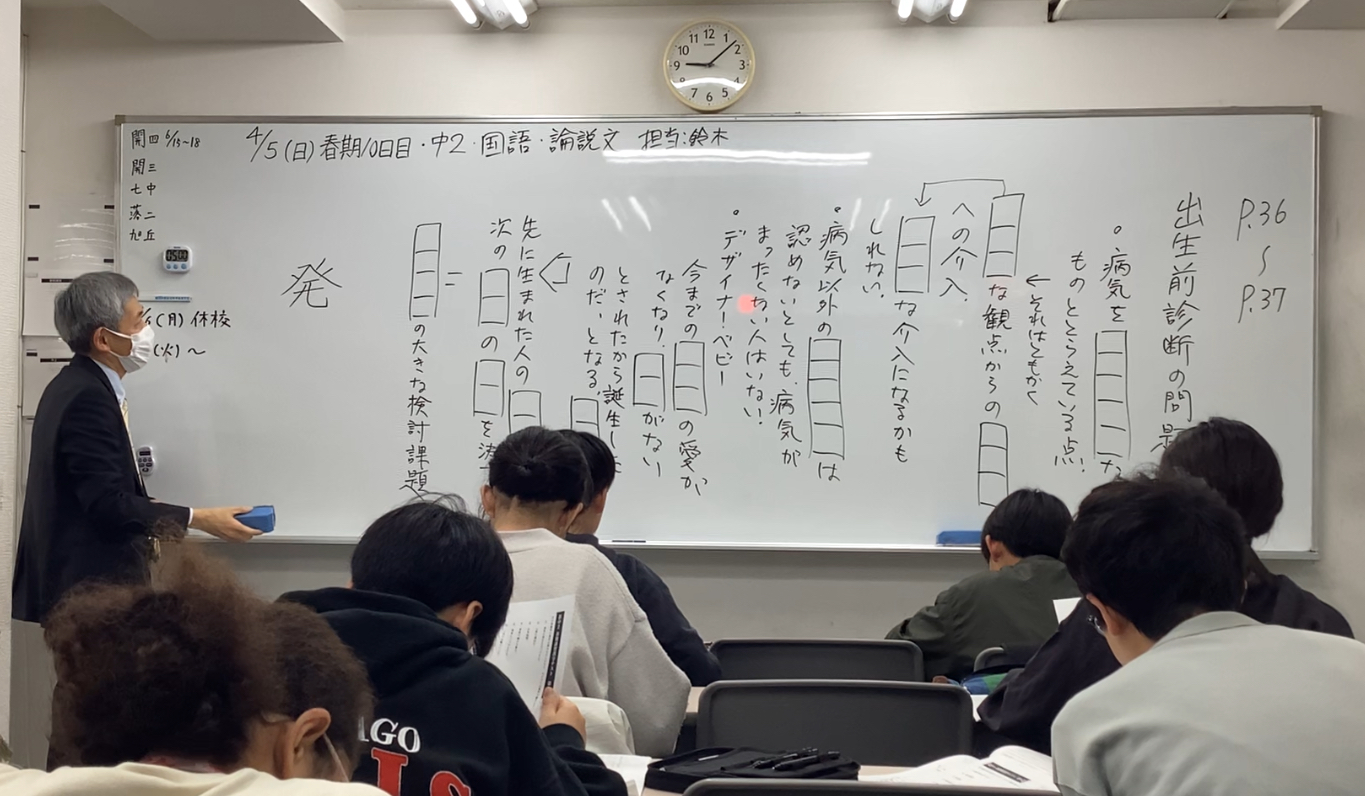 開四 6/15~18
開三
七中
落二
旭丘
4/5(日)春期10日目・中2・国語・論説文 担当:鈴木
P.36
〜
P.37
出生前診断の問題
。病気を
な
ものととらえている点!
← それはともかく
な観点からの
への介入。
な介入になるかも
しれない。
。病気以外の
は
認めないとしても、病気が
まったくない人はいない!
。デザイナー・ベビー
今までの
の愛が
なくなり、
がない
とされたから誕生した
のだ、となる。
先に生まれた人の
次の
の
を決
=
の大きな検討課題
発
(月)休校
(火)〜
05:00
12
1
2
3
4
5
6
7
8
9
10
11
AGO